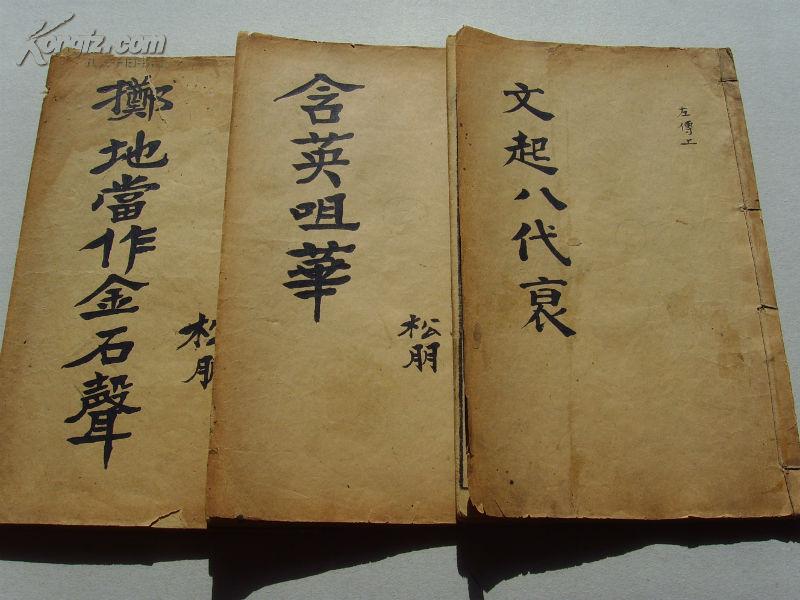 文起八代衰
左傳上
含英咀華
松朋
擲地當作金石聲
松朋
Kongfz.com